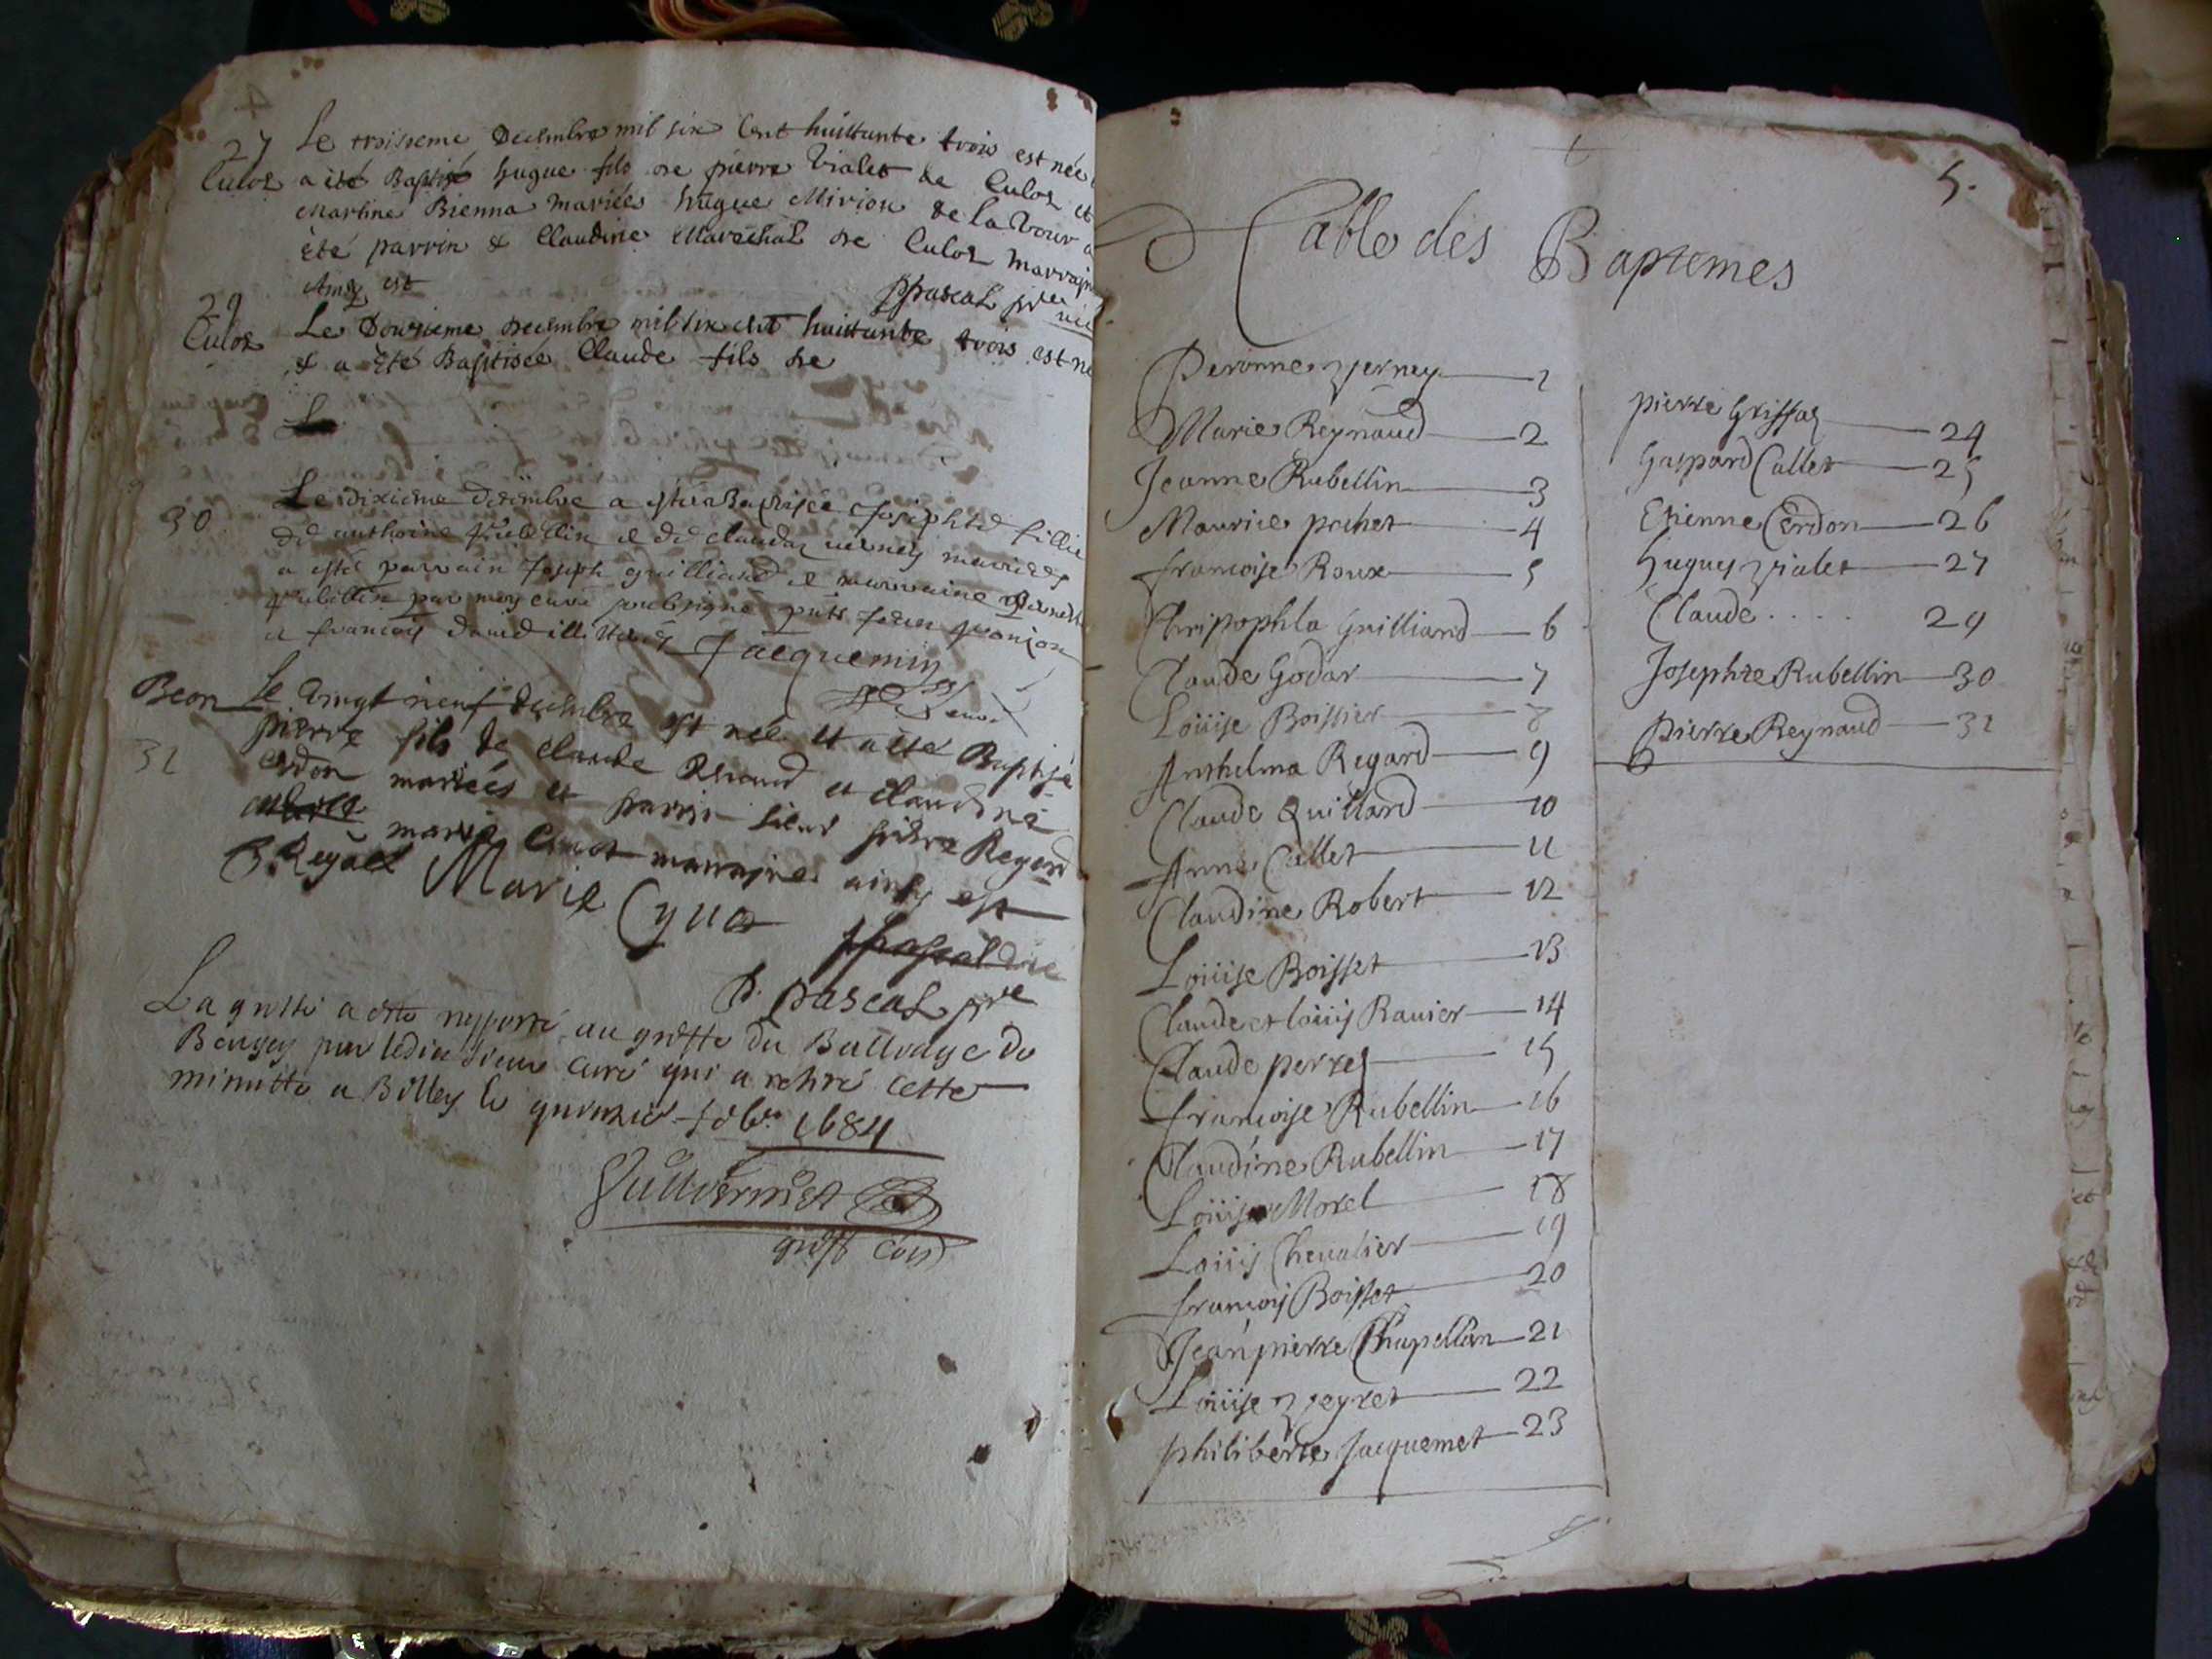 4
27 Le troisieme Decembre mil six Cent huittante trois est née
Culoz a ité Baptisé hugue fils de pierre Vialet de Culoz et
Martine Bienna mariées hugue Mirion de la Tour a
été parrin & Claudine Marechal de Culoz marraine
Ainsy est
ppascal pre
29 Le Douzieme decembre mil six cent huittante trois est né
Culoz & a été Baptisée Claude fils de
30 Le dixieme decembre a esté Baptisée Josephte fillie
de anthoine Rubellin et de clauda verney mariees
a esté parrain Joseph guilliand et marraine
Rubellin par moy curé soubsigné
et francois
Jacquemin
Beon Le vingt neuf decembre est née et a été Baptisé
31 pierre fils de claude Renaud et claudine
Cerdon mariées et parrin sieur pierre Regard
marie Cyuot marraine ainsy est
P. Regard Marie Cyuot
P. pascal pre
La grosse a esté rapporté au greffe du Bailliage de
Beugey par ledit sieur curé qui a retiré cette
minutte a Belley le quinzie febr. 1684
greff
5.
Table des Baptemes
Peronne Verney 1
Marie Reynaud 2
Jeanne Rubellin 3
Maurice pochet 4
francoise Roux 5
Christophla Guilliand 6
Claude Godar 7
Loüise Boissier 8
Anthelma Regard 9
Claude Quillard 10
Anne Callet 11
Claudine Robert 12
Loüise Boisset 13
Claude et loüis Ravier 14
Claude perret 15
francoise Rubellin 16
Claudine Rubellin 17
Loüise Morel 18
Loüis Chevalier 19
francois Boisset 20
Jean pierre Chapellan 21
Loüise Veyret 22
philiberte Jacquemet 23
pierre Griffoz 24
Gaspard Callet 25
Etienne Cerdon 26
hugues Vialet 27
Claude . . . . 29
Josephte Rubellin 30
pierre Reynaud 31